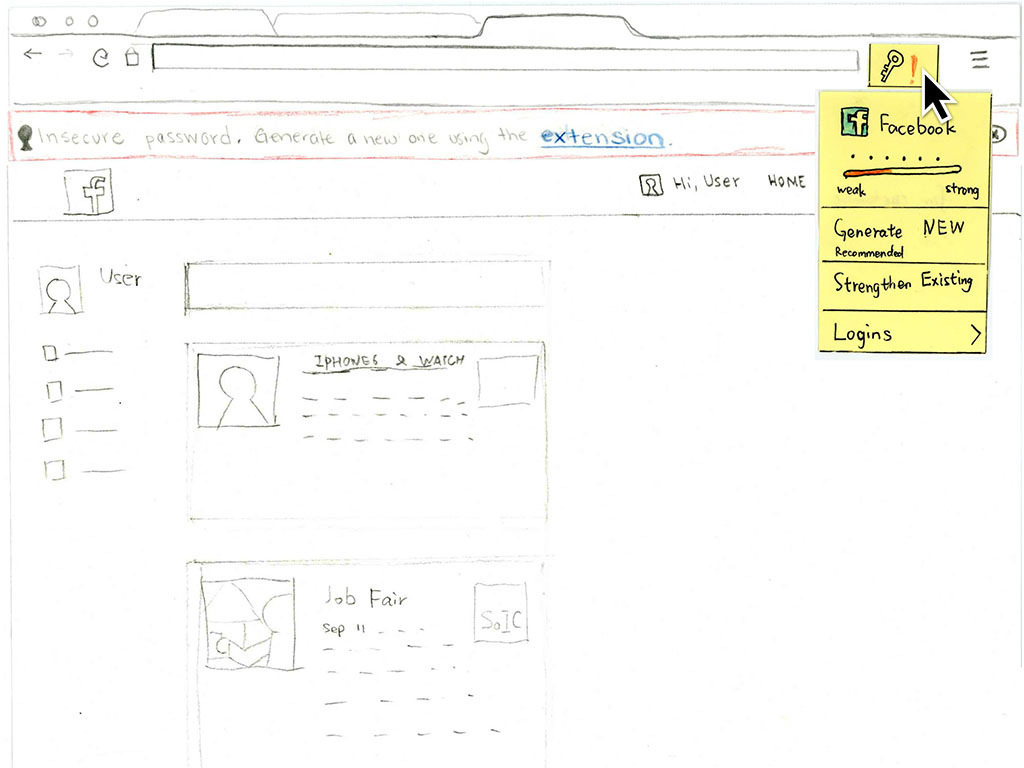 Insecure password. Generate a new one using the extension.
f
Hi, User HOME
f Facebook
weak strong
Generate NEW
Recommended
Strengthen Existing
Logins >
User
IPHONES & WATCH
Job Fair
Sep 11
SoIC
C